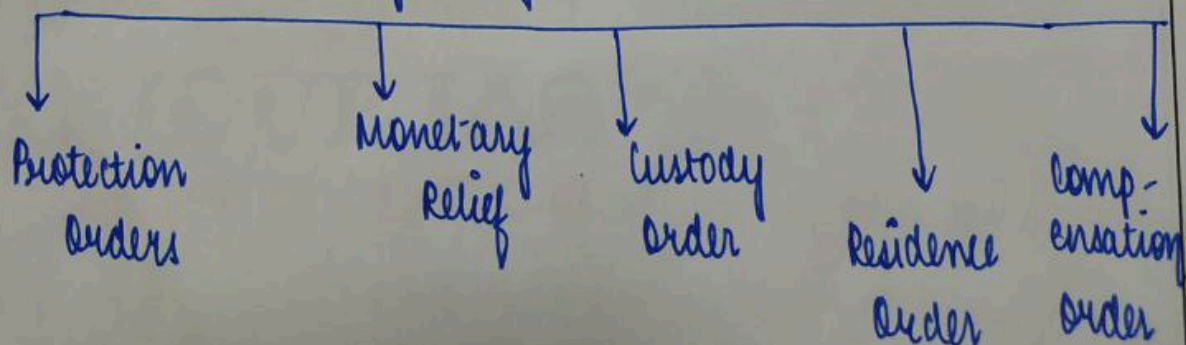 Protection
Orders
Monetary
Relief
Custody
Order
Residence
Order
Comp-
ensation
Order